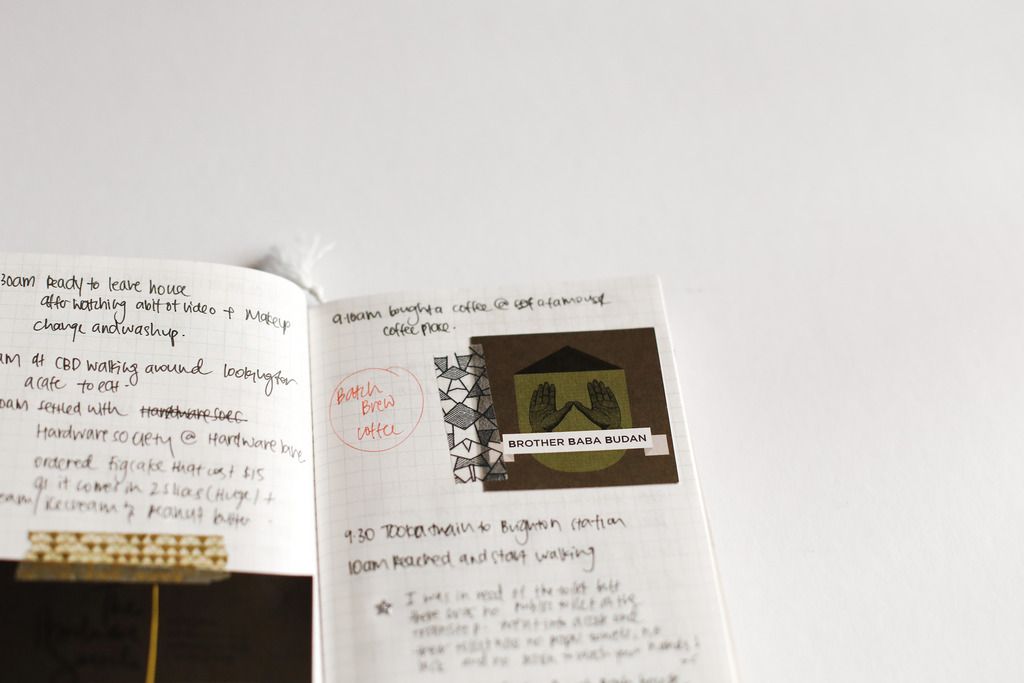 30am Ready to leave house
after watching abit of video + Makeup
change and washup.
am at CBD walking around looking for
a cafe to eat.
0am settled with Hardware Soec
Hardware society @ Hardware lane
ordered figcake that cost $15
as it comes in 2 slices (Huge) +
eam/ Icecream & Peanut butter
9.10am bought a coffee @ a famous
coffee place.
Batch
Brew
coffee
BROTHER BABA BUDAN
9.30 Took a train to Brighton Station
10am Reached and start walking
I was in need of the toilet but
there was no public toilet at the
went into a
no paper towels, no
and no to wash your hands!